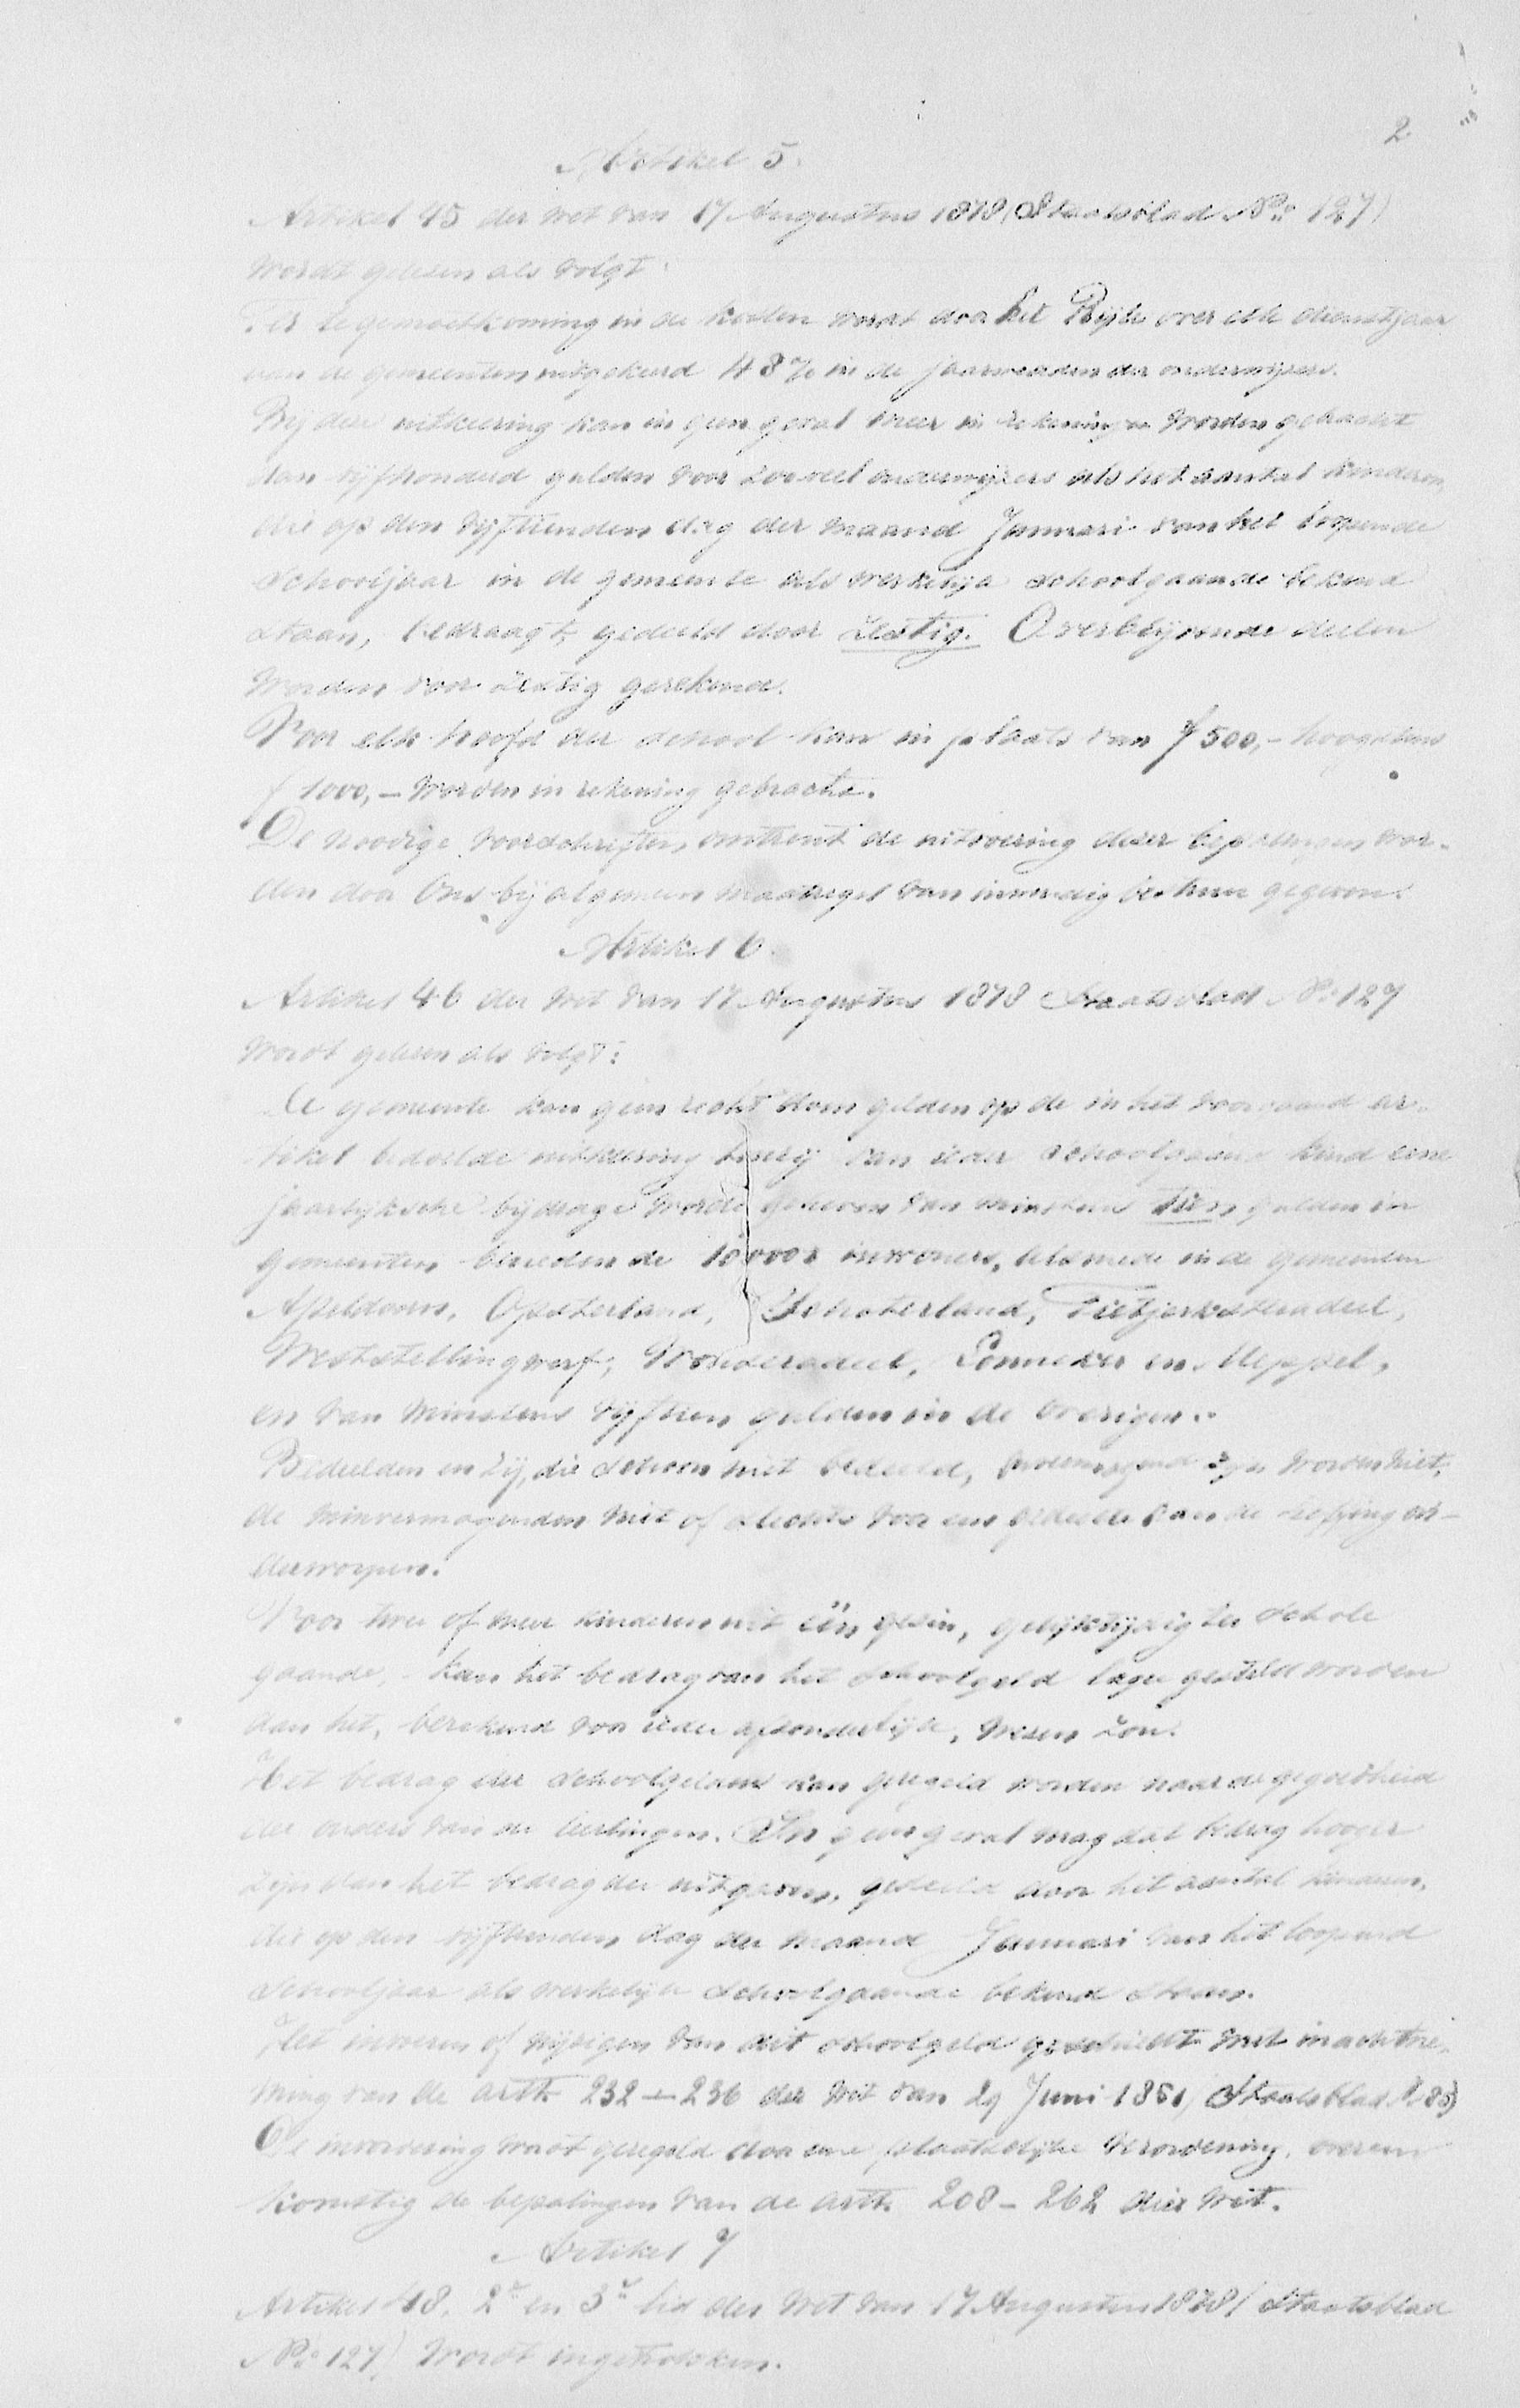 2
Artikel 5.
Artikel 45 der wet van 17 Augustus 1878 (Staatsblad No. 127)
wordt gelezen als volgt:
Ter tegemoetkoming in de kosten wordt door het Rijk over elk dienstjaar
aan de gemeenten uitgekeerd 48 % in de jaarwedden der onderwijzers.
Bij deze uitkeering kan in geen geval meer in rekening worden gebracht
dan vijfhonderd gulden voor zooveel onderwijzers als het aantal kinderen,
die op den vijftienden dag der maand Januari van het loopende
schooljaar in de gemeente als werkelijk schoolgaande bekend
staan, bedraagt, gedeeld door zestig. Overblijvende deelen
worden voor zestig gerekend.
Voor elk hoofd der school kan in plaats van f 500,- hoogstens
f 1000,- worden in rekening gebracht.
De noodige voorschriften omtrent de uitvoering dezer bepalingen wor-
den door Ons bij algemeen maatregel van inwendig bestuur gegeven.
Artikel 6.
Artikel 46 der wet van 17 Augustus 1878 Staatsblad No. 127
wordt gelezen als volgt:
De gemeente kan geen recht doen gelden op de in het voorgaand ar-
tikel bedoelde uitkeering tenzij van ieder schoolgaand kind eene
jaarlijksche bijdrage wordt geheven van minstens tien gulden in
gemeenten beneden de 10000 inwoners, alsmede in de gemeenten
Apeldoorn, Opsterland, Schoterland, Tietjerksteradeel,
Weststellingwerf, Wonseradeel, Lonneker en Meppel,
en van minstens vijftien gulden in de overigen.
Bedeelden en zij, die schoon niet bedeeld, onvermogend zijn worden niet,
de minvermogenden niet of slechts voor een gedeelte van de heffing on-
derworpen.
Voor twee of meer kinderen uit één gezin, gelijktijdig ter schole
gaande, kan het bedrag van het schoolgeld lager gesteld worden
dan het, berekend voor ieder afzonderlijk, wezen zou.
Het bedrag der schoolgelden kan geregeld worden naar de gegoedheid
der ouders van de leerlingen. In geen geval mag dat bedrag hooger
zijn dan het bedrag der uitgaven, gedeeld door het aantal kinderen,
die op den vijftienden dag der maand Januari van het loopend
schooljaar als werkelijk schoolgaande bekend staan.
Het invoeren of wijzigen van dit schoolgeld geschiedt met inachtne-
ming van de artt. 232 - 236 der wet van 29 Juni 1851, Staatsblad No. 85)
De invordering wordt geregeld door eene plaatselijke verordening, overeen
komstig de bepalingen van de artt. 208 - 262 dier wet.
Artikel 7
Artikel 48, 2e en 3e lid der wet van 17 Augustus 1878 (Staatsblad
No. 127) wordt ingetrokken.